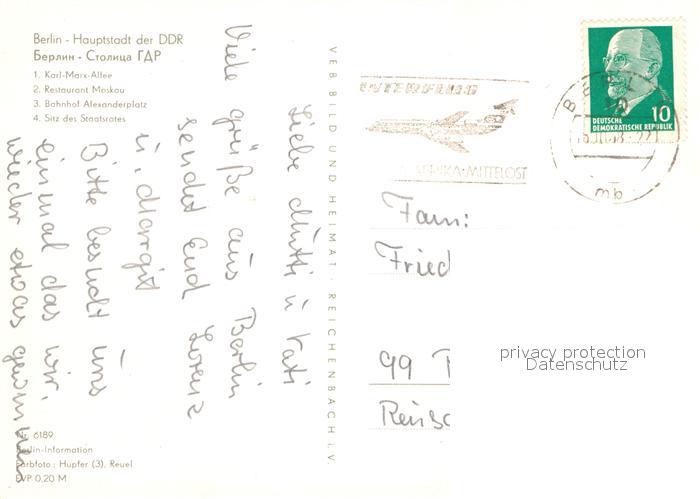 Berlin - Hauptstadt der DDR
Берлин - Столица ГДР
1. Karl-Marx-Allee
2. Restaurant Moskau
3. Bahnhof Alexanderplatz
4. Sitz des Staatsrates
Liebe Mutti u. Kati
Viele grüße aus Berlin
sendet Eud Lorenz
u. Margit
Bitte besucht uns
einmal das wir
wieder etwas gewinnen
Nr. 6189
Berlin-Information
Farbfoto: Hupfer (3), Reuel
EVP 0,20 M
VEB BILD UND HEIMAT, REICHENBACH i. V
INTERFLUG
AFRIKA-MITTELOST
BERL
mb
10
DEUTSCHE
DEMOKRATISCHE REPUBLIK
Fam:
Fried
99
Reis
privacy protection
Datenschutz